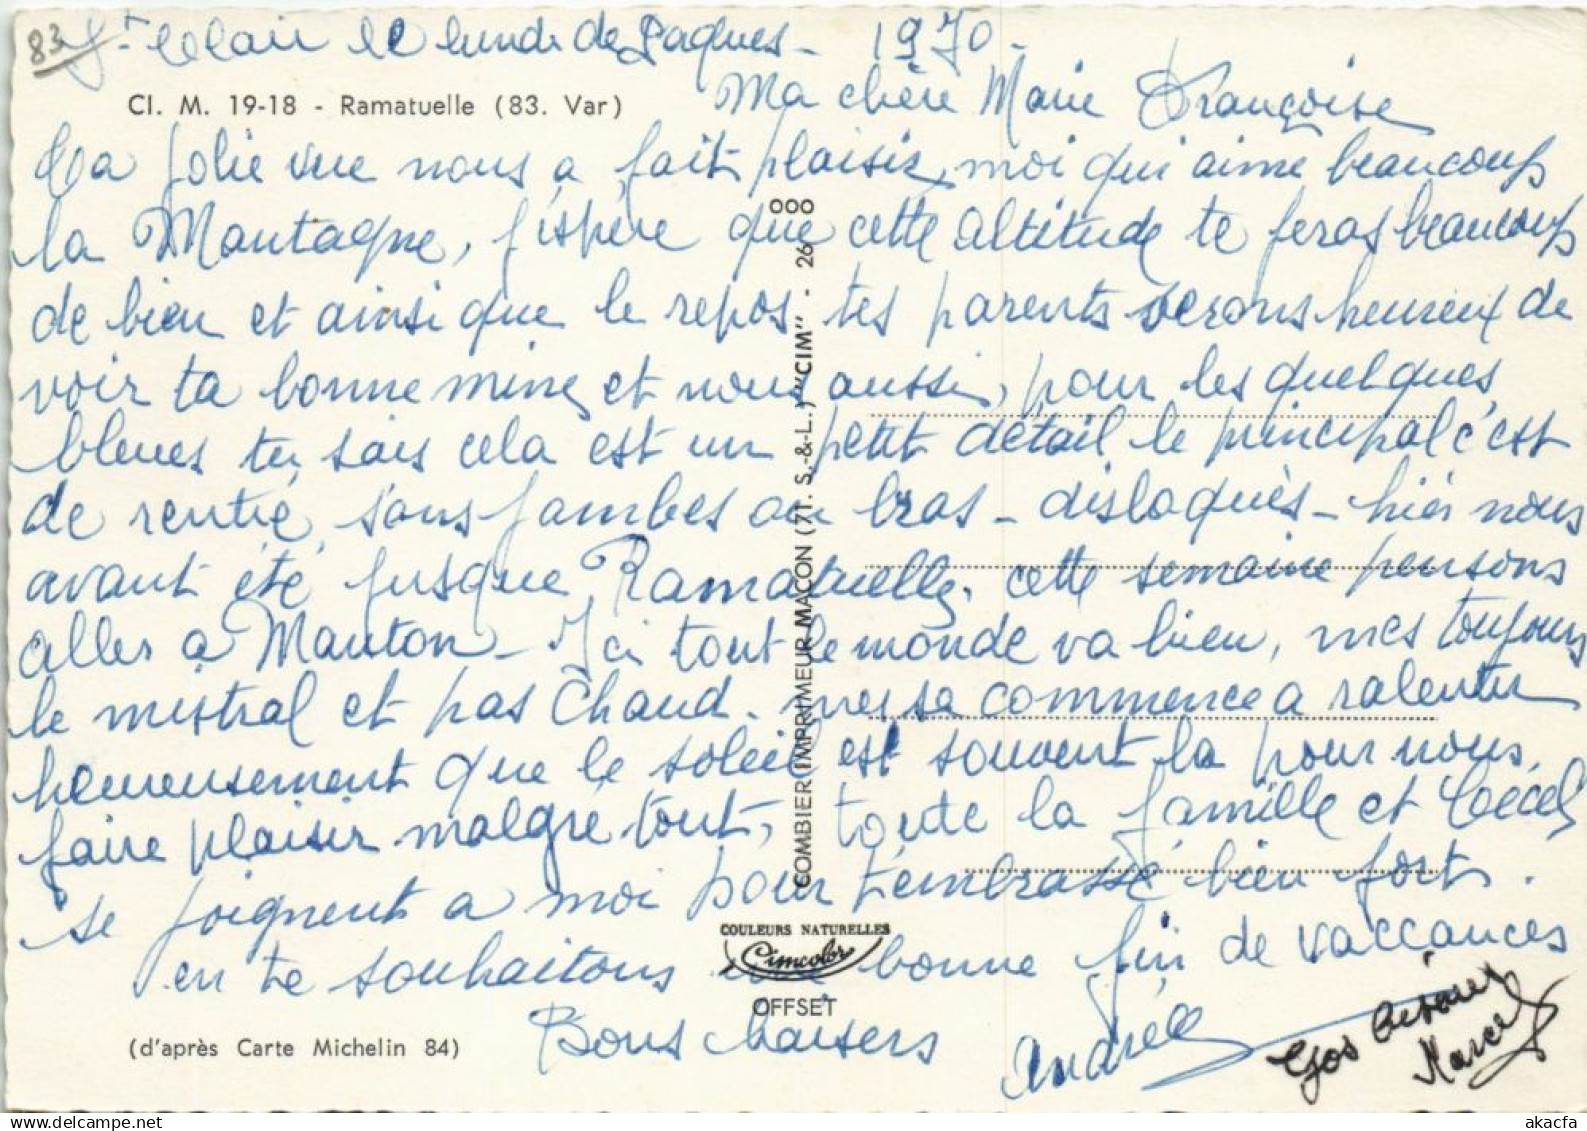 83
St Clair le lundi de Paques - 1970 -
Cl. M. 19-18 - Ramatuelle (83. Var)
Ma chère Marie Françoise
Ta jolie vue nous a fait plaisir, moi qui aime beaucoup
la Montagne, j'espère que cette altitude te feras beaucoup
de bien et ainsi que le repos, tes parents serons heureux de
voir ta bonne mine, et nous aussi, pour les quelques
bleues tu sais cela est un petit détail le principal c'est
de rentré, sans jambes ou bras - disloqués - hiér nous
avant été jusque Ramatuelle, cette semaine pensons
aller à Manton - Ici tout le monde va bien, mes toujours
le mistral et pas chaud. mes sa commence a ralentir
heureusement que le soleil est souvent la pour nous
faire plaisir malgré tout, toute la famille et
se joignent a moi pour t'embrassé bien fort.
en te souhaitons une bonne fin de vaccances
Bons baisers
Andrée
Gos baisers
Marcel
COMBIER IMPRIMEUR MACON (71. S.-&-L.) "CIM" - 26 000
COULEURS NATURELLES
Cimcolor
OFFSET
(d'après Carte Michelin 84)
www.akacfa.net
akacfa